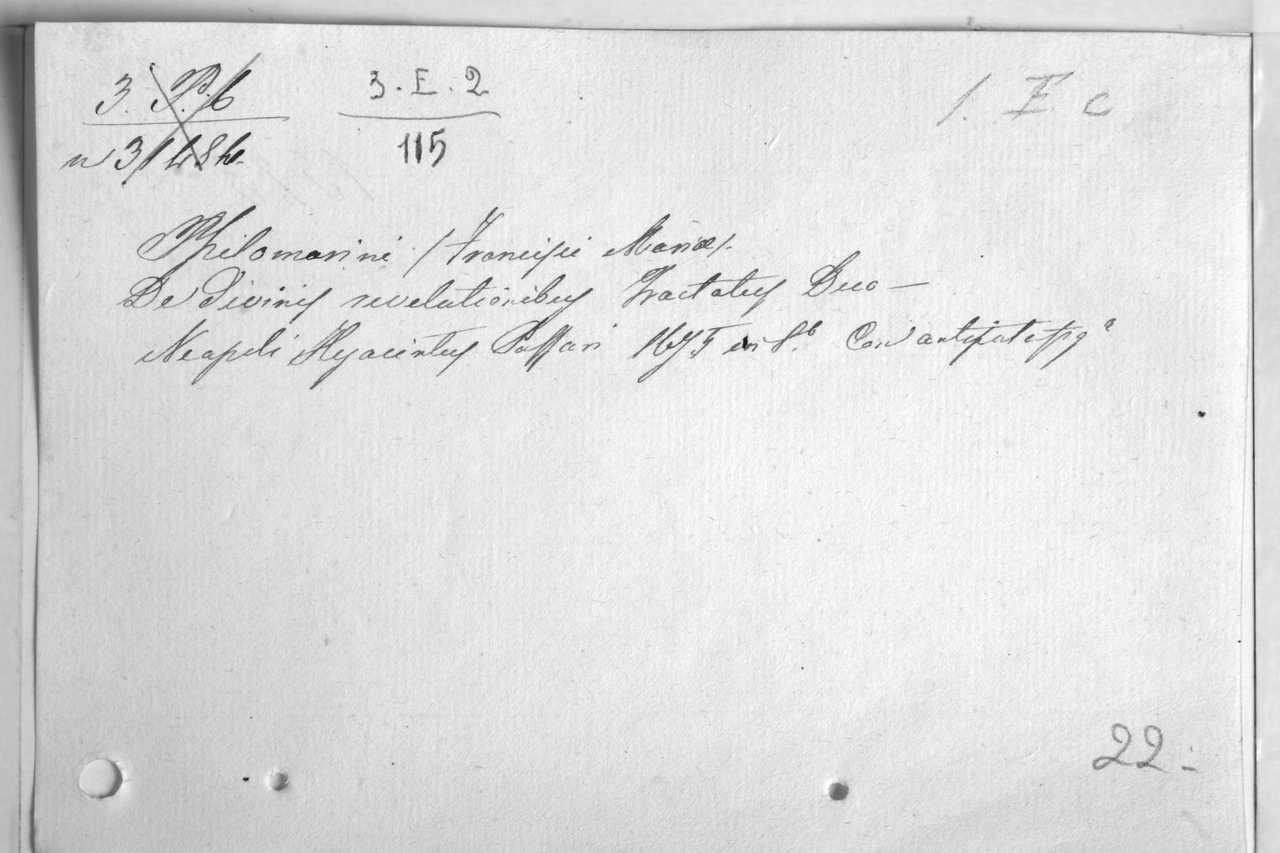 3. P. 6
3. E. 2
1. F c
115
Philomarini /Francisci Mariæ/.
De Divinis revelationibus Tractatus Duo —
Neapoli Hyacintus Passari 1675 in 8.° Con antiporta
22 -